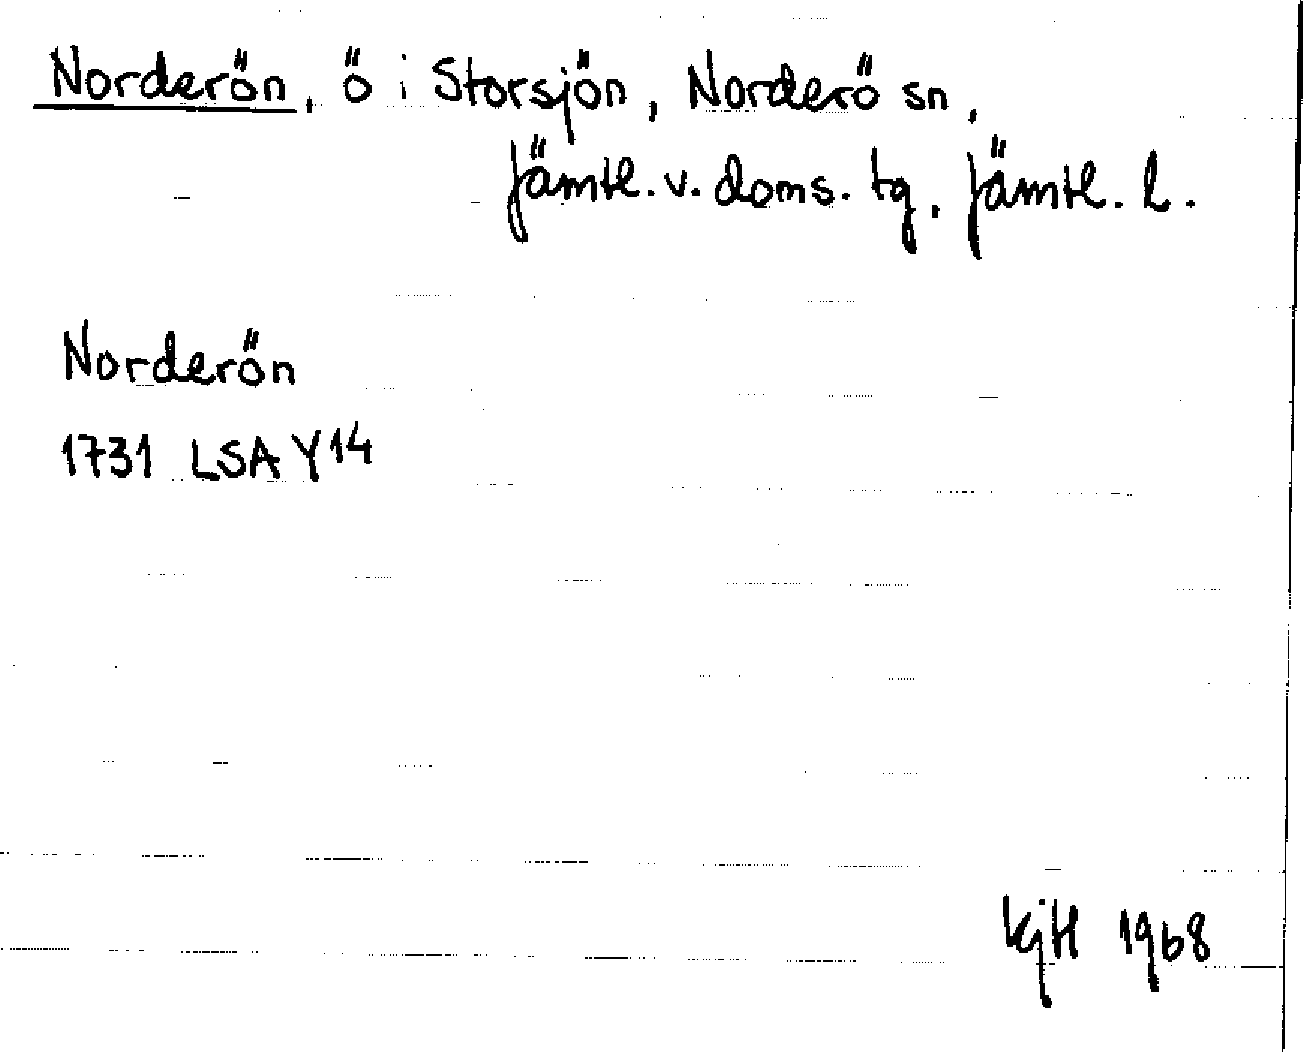 Norderön, ö i Storsjön, Norderö sn,
Jämtl. v. doms. tg, Jämtl. l.
Norderön
1731 LSA Y14
KjH 1968